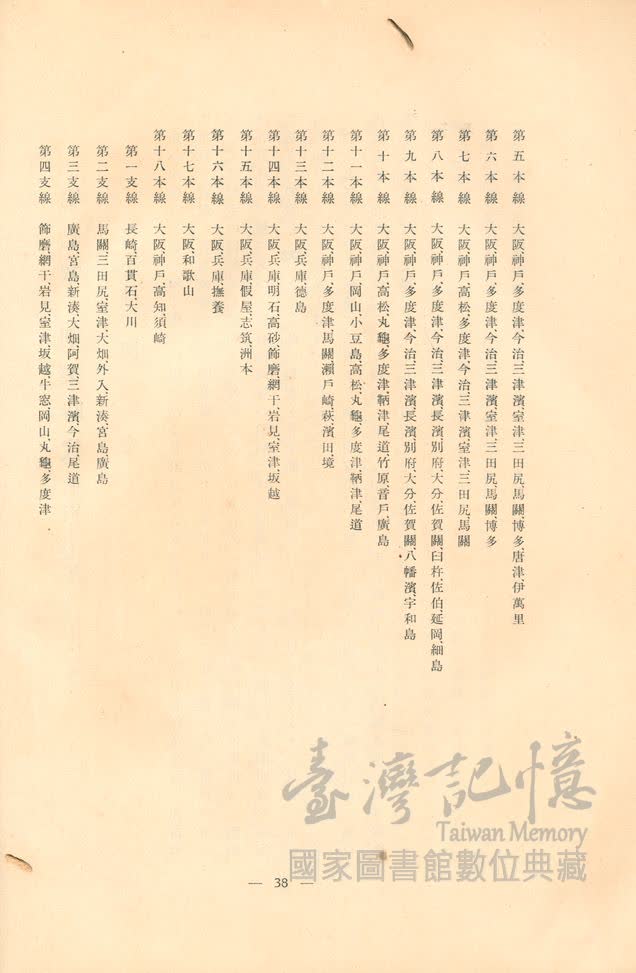 第五本線　大阪、神戶、多度津、今治、三津濱、室津、三田尻、馬關、博多、唐津、伊萬里
第六本線　大阪、神戶、多度津、今治、三津濱、室津、三田尻、馬關、博多
第七本線　大阪、神戶、高松、多度津、今治、三津濱、室津、三田尻、馬關
第八本線　大阪、神戶、多度津、今治、三津濱、長濱、別府、大分、佐賀關、臼杵、佐伯、延岡、細島
第九本線　大阪、神戶、多度津、今治、三津濱、長濱、別府、大分、佐賀關、八幡濱、宇和島
第十本線　大阪、神戶、高松、丸龜、多度津、鞆津、尾道、竹原、音戶、廣島
第十一本線　大阪、神戶、岡山、小豆島、高松、丸龜、多度津、鞆津、尾道
第十二本線　大阪、神戶、多度津、馬關、瀨戶崎、萩、濱田、境
第十三本線　大阪、兵庫、德島
第十四本線　大阪、兵庫、明石、高砂、飾磨、網干、岩見、室津、坂越
第十五本線　大阪、兵庫、假屋、志筑、洲本
第十六本線　大阪、兵庫、撫養
第十七本線　大阪、和歌山
第十八本線　大阪、神戶、高知、須崎
第一支線　長崎、百貫石、大川
第二支線　馬關、三田尻、室津、大畑、外入、新湊、宮島、廣島
第三支線　廣島、宮島、新湊、大畑、阿賀、三津濱、今治、尾道
第四支線　飾磨、網干、岩見、室津、坂越、牛窓、岡山、丸龜、多度津
臺灣記憶
Taiwan Memory
國家圖書館數位典藏
— 38 —